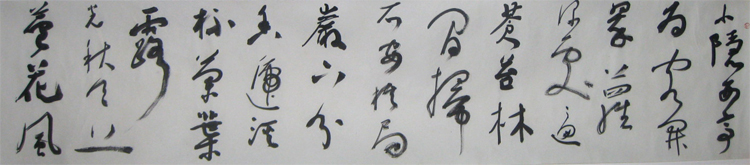 小隱西亭
為客開
翠蘿
深處遍
蒼苔林
間掃
石安棋局
巖下分
泉遞酒
杯蘭葉
露
光秋月上
蘆花風